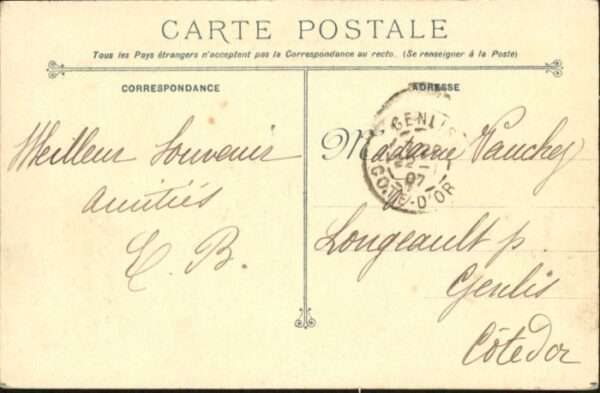 CARTE POSTALE
Tous les Pays étrangers n'acceptent pas la Correspondance au recto. (Se renseigner à la Poste)
CORRESPONDANCE
Meilleur Souvenir
Amitiés
E. B.
ADRESSE
Madame Vauchey
à
Longeault p.
Genlis
Côte d'or
GENLIS
07
CÔTE-D'OR